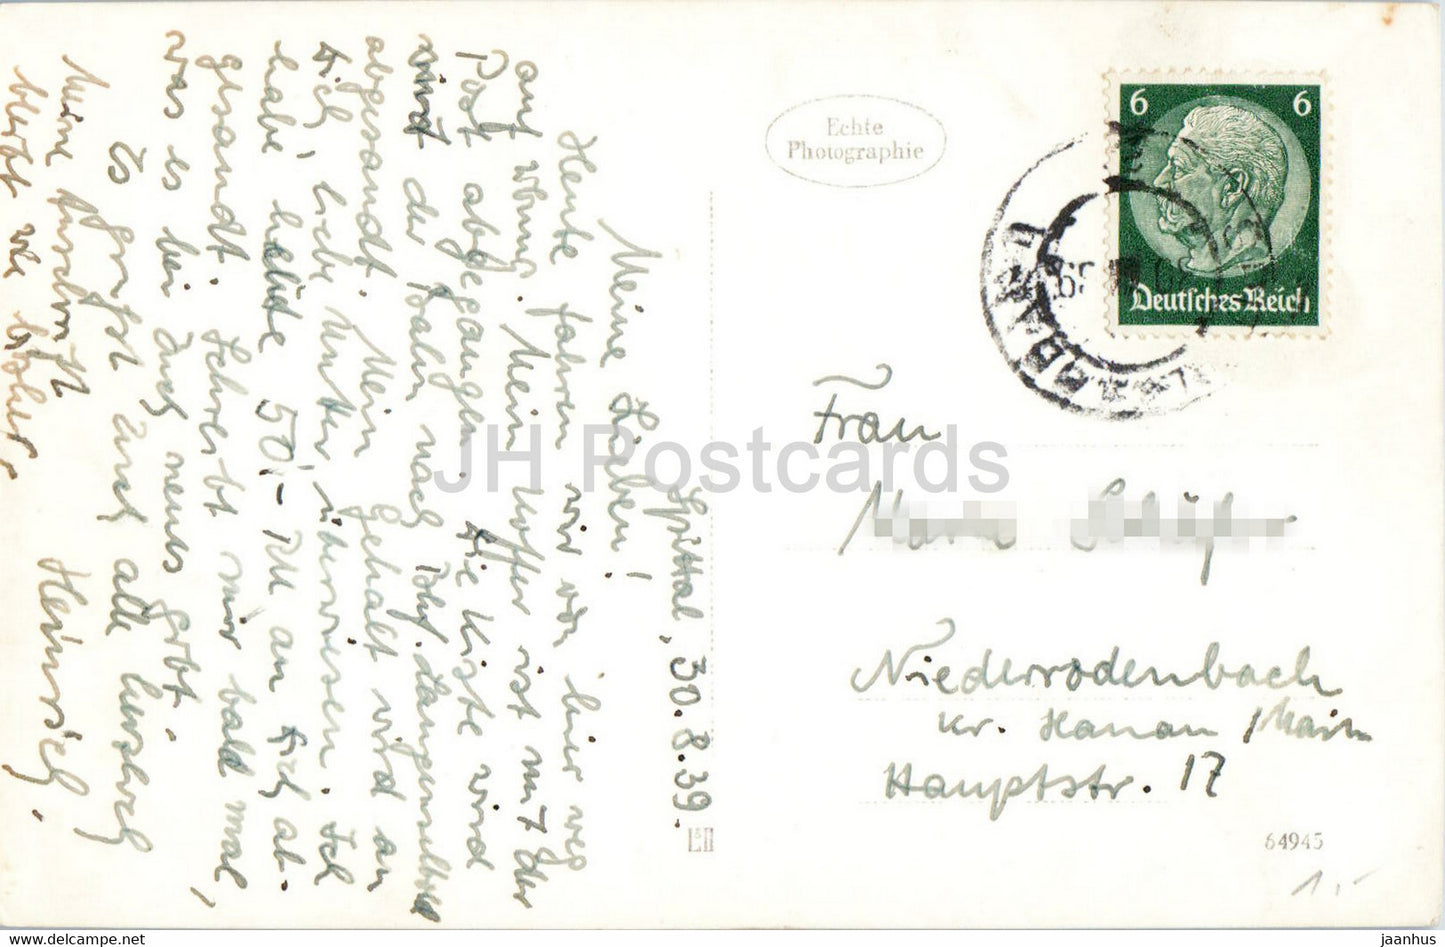 Spittal, 30.8.39.
Meine Lieben!
Heute fahren wir von hier weg
auf Mein Koffer ist mit der
Post abgegangen. Die Kiste wird
mit der Bahn nach Bhf. Langenselbold
abgesandt. Mein Gehalt wird an
Dich, liebe Mutter, überwiesen. Ich
habe heute 50,- RM an Dich ab-
gesandt. Schreibt mir bald mal,
was es bei Euch neues gibt.
Es grüßt Euch alle herzlich
Heinrich.
Meine Anschrift
bleibt wie bisher.
Echte
Photographie
6 6
Deutsches Reich
Frau
Niederrodenbach
Kr. Hanau /Main
Hauptstr. 17
64945
1.-
JH Postcards
jaanhus - https://www.jaanhus.com